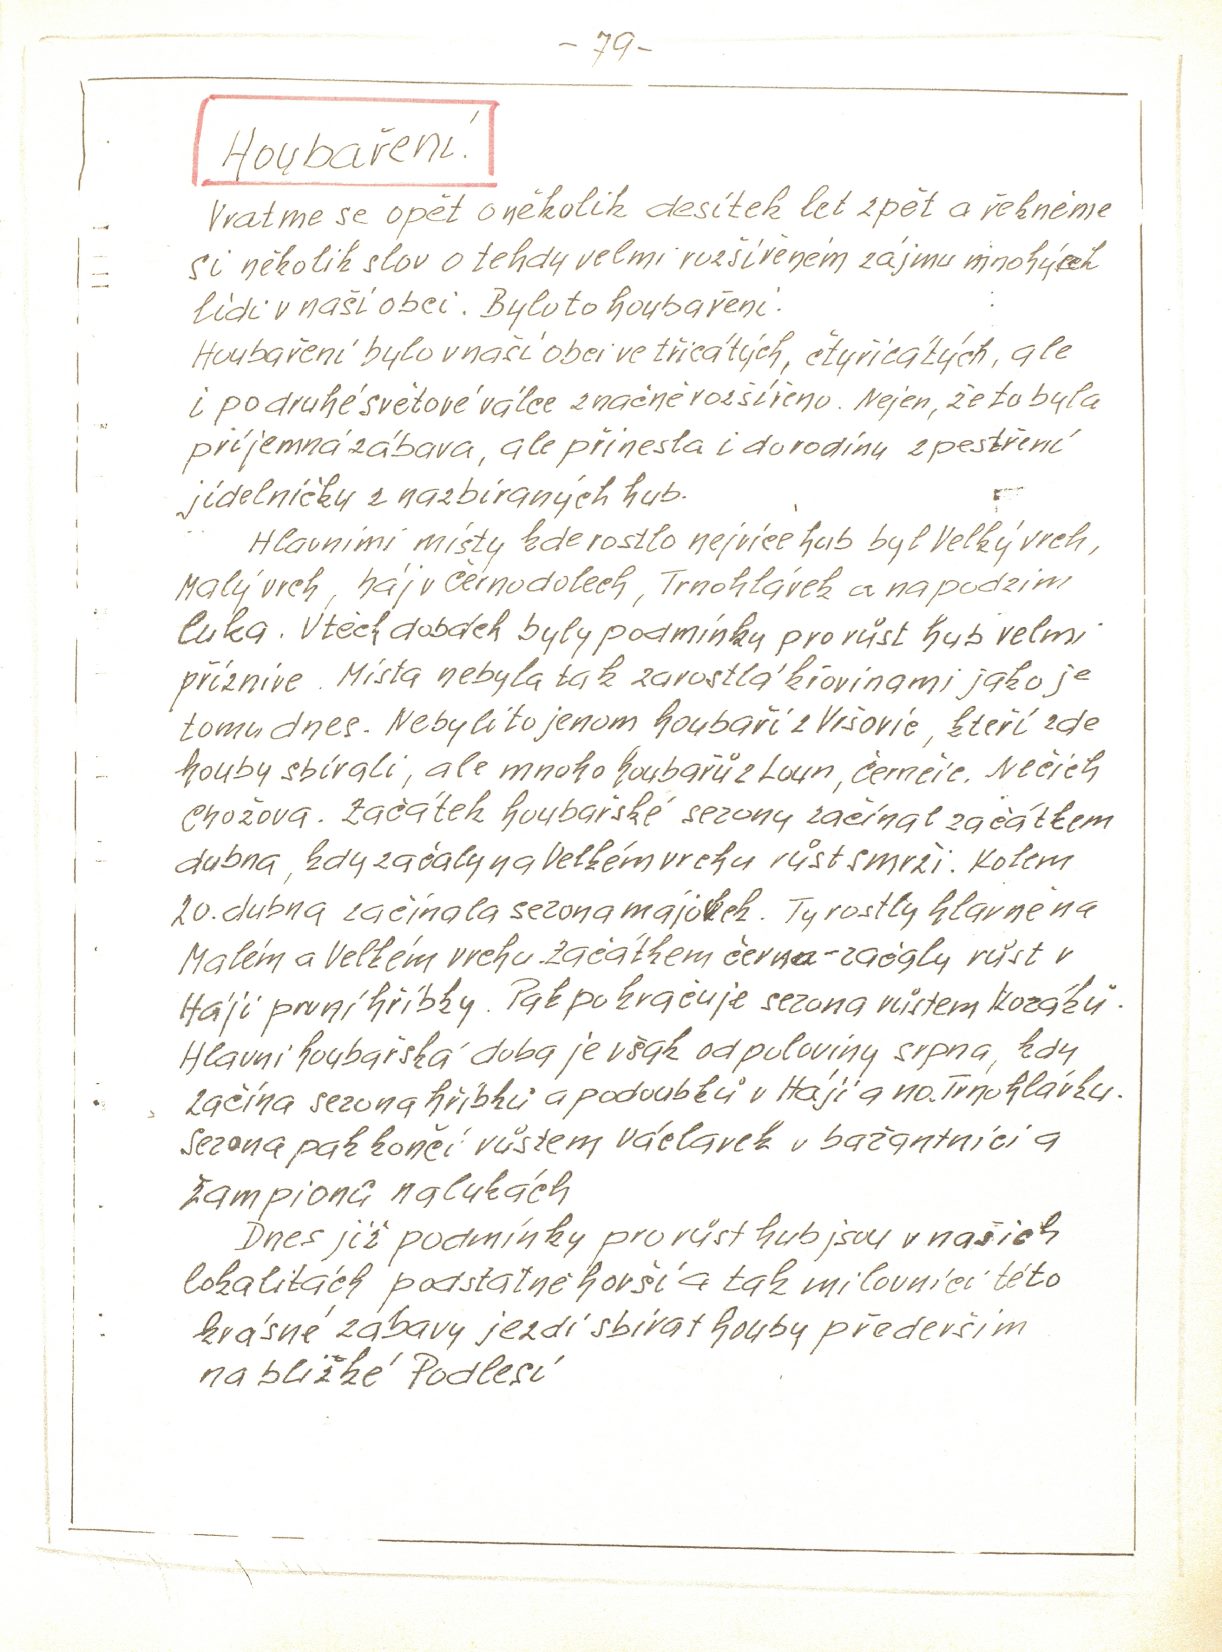 - 79 -
Houbaření.
Vraťme se opět o několik desítek let zpět a řekněme
si několik slov o tehdy velmi rozšířeném zájmu mnohých
lidí v naší obci. Bylo to houbaření.
Houbaření bylo v naší obci ve třicátých, čtyřicátých, ale
i po druhé světové válce značně rozšířeno. Nejen, že to byla
příjemná zábava, ale přinesla i do rodiny zpestření
jídelníčku z nazbíraných hub.
Hlavními místy kde rostlo nejvíce hub byl Velký vrch,
Malý vrch, háj v Černodolech, Trnohlávek a na podzim
luka. V těch dobách byly podmínky pro růst hub velmi
příznivé. Místa nebyla tak zarostlá křovinami jako je
tomu dnes. Nebyli to jenom houbaři z Vršovic, kteří zde
houby sbírali, ale mnoho houbařů z Loun, Černčic. Nečich
Chožova. Začátek houbařské sezony začínal začátkem
dubna, kdy začaly na Velkém vrchu růst smrži. Kolem
20. dubna začínala sezona májovek. Ty rostly hlavně na
Malém a Velkém vrchu Začátkem června začaly růst v
Háji první hřibky. Pak pokračuje sezona růstem Kozáků.
Hlavní houbařská doba je však od poloviny srpna, kdy
začíná sezona hřibků a podoubků v Háji a na Trnohlávku.
Sezona pak končí růstem Václavek v bažantnici a
Žampionů na lukách
Dnes již podmínky pro růst hub jsou v našich
lokalitách podstatně horší a tak milovníci této
krásné zábavy jezdí sbírat houby především
na blízké Podlesí